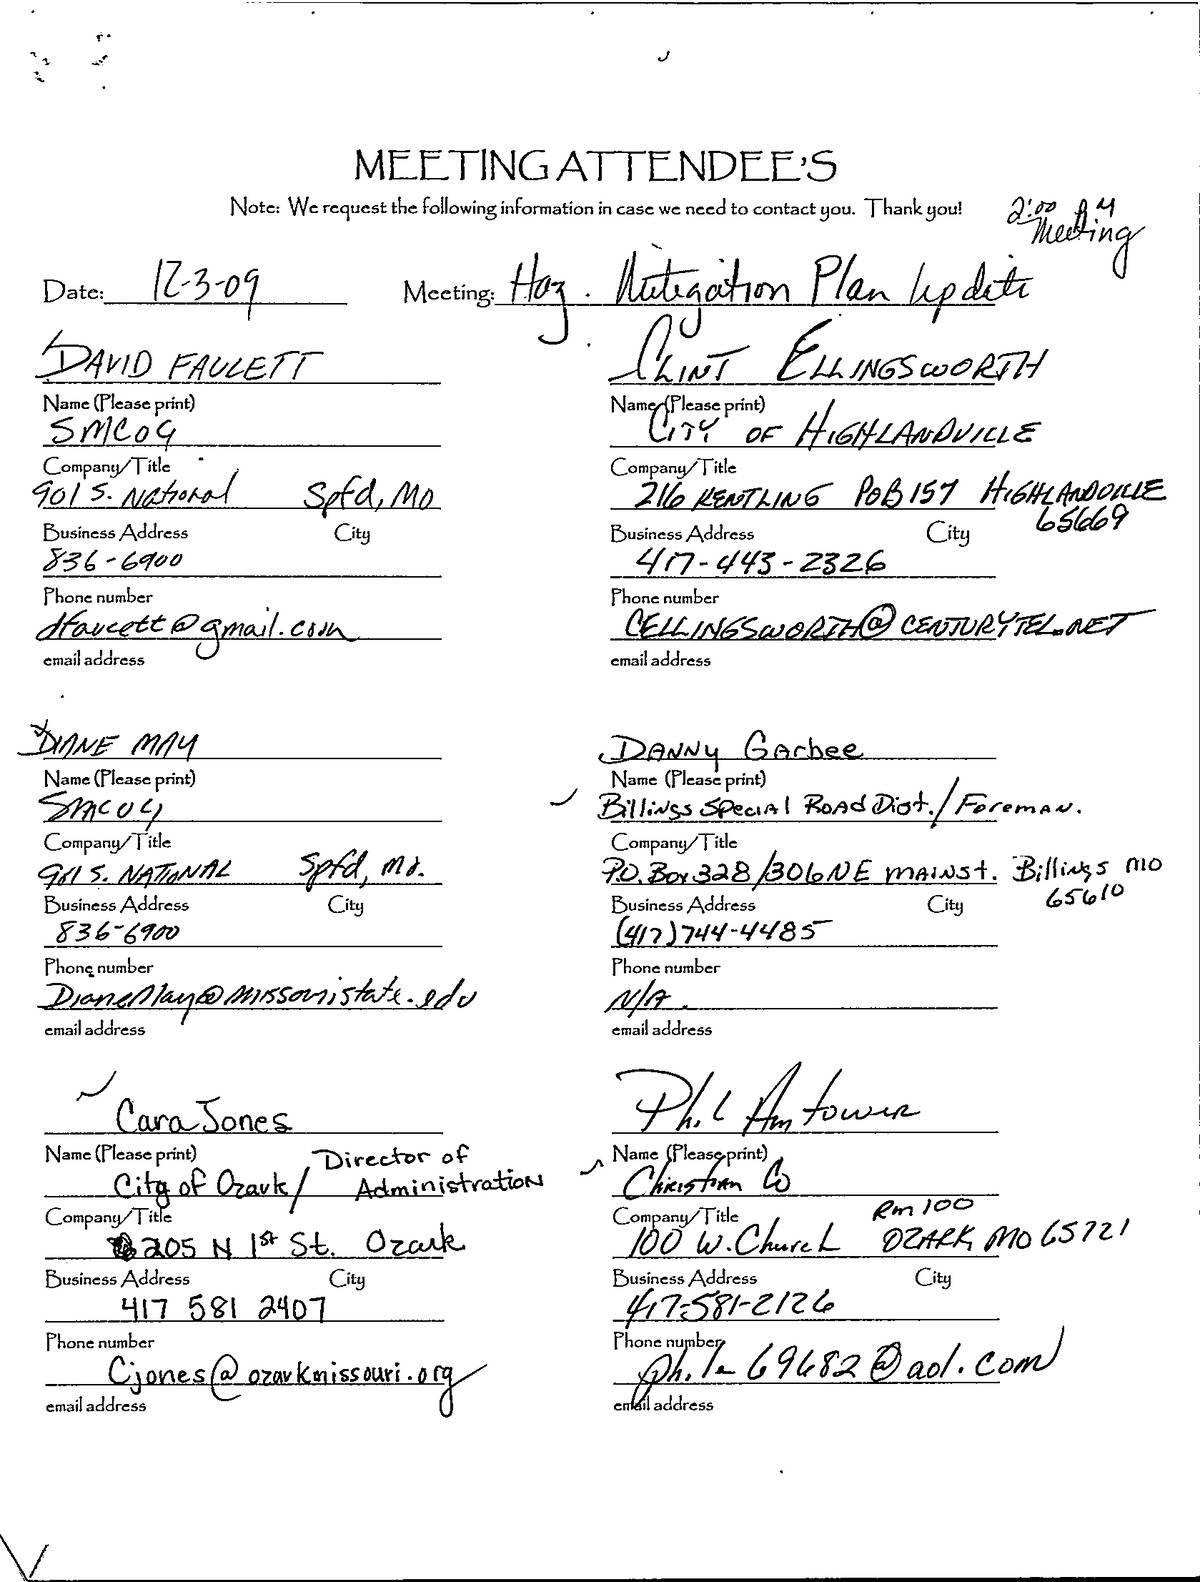 MEETING ATTENDEE'S
Note: We request the following information in case we need to contact you. Thank you!
2:00 PM
Meeting
Date: 12-3-09 Meeting: Haz. Mitigation Plan Update
DAVID FAUCETT
Name (Please print)
SMCOG
Company/Title
901 S. National Spfd, MO
Business Address City
836-6900
Phone number
dfaucett@gmail.com
email address
CLINT ELLINGSWORTH
Name (Please print)
CITY OF HIGHLANDVILLE
Company/Title
216 KENTLING POB 157 HIGHLANDVILLE
65669
Business Address City
417-443-2326
Phone number
CELLINGSWORTH@CENTURYTEL.NET
email address
DIANE MAY
Name (Please print)
SMCOG
Company/Title
901 S. NATIONAL Spfd, Mo.
Business Address City
836-6900
Phone number
DianeMay@missouristate.edu
email address
DANNY Garbee
Name (Please print)
Billings Special Road Dist./Foreman.
Company/Title
P.O. Box 328/306 NE MAIN St. Billings MO
65610
Business Address City
(417)744-4485
Phone number
N/A.
email address
Cara Jones
Name (Please print)
City of Ozark/ Director of
Administration
Company/Title
205 N 1st St. Ozark
Business Address City
417 581 2407
Phone number
Cjones@ozarkmissouri.org
email address
Phil Amtower
Name (Please print)
Christian Co
Company/Title
Rm 100
100 W. Church OZARK MO 65721
Business Address City
417-581-2126
Phone number
69682@aol.com
email address